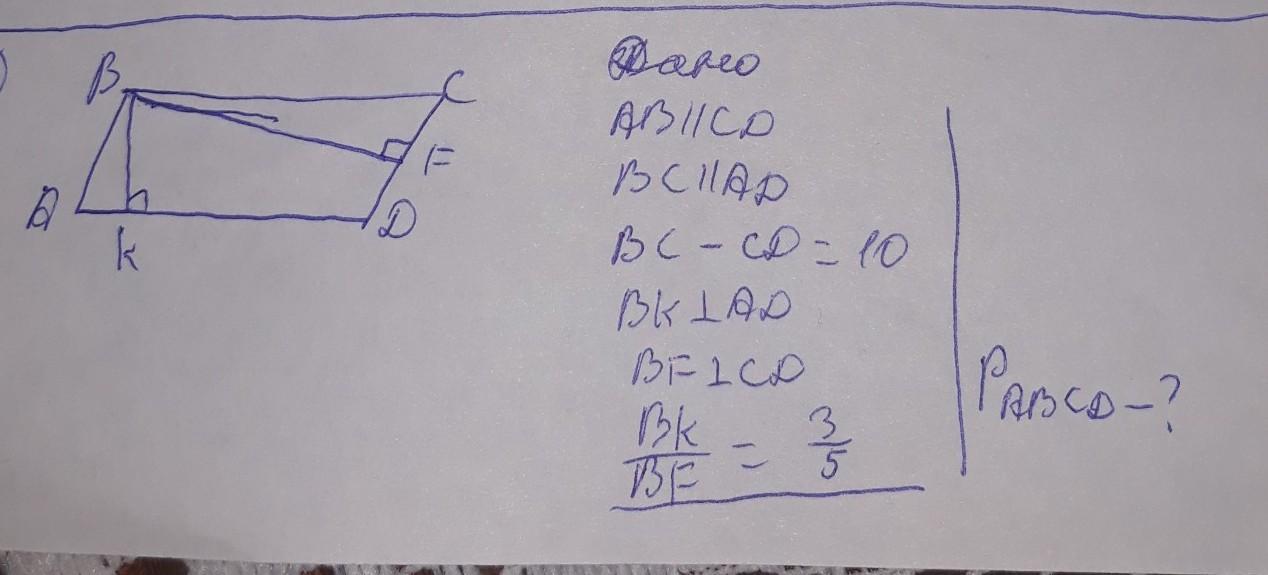 B
C
F
A
D
K
Дано
AB∥CD
BC∥AD
BC - CD = 10
BK⊥AD
BF⊥CD
BK/BF = 3/5
P_ABCD - ?